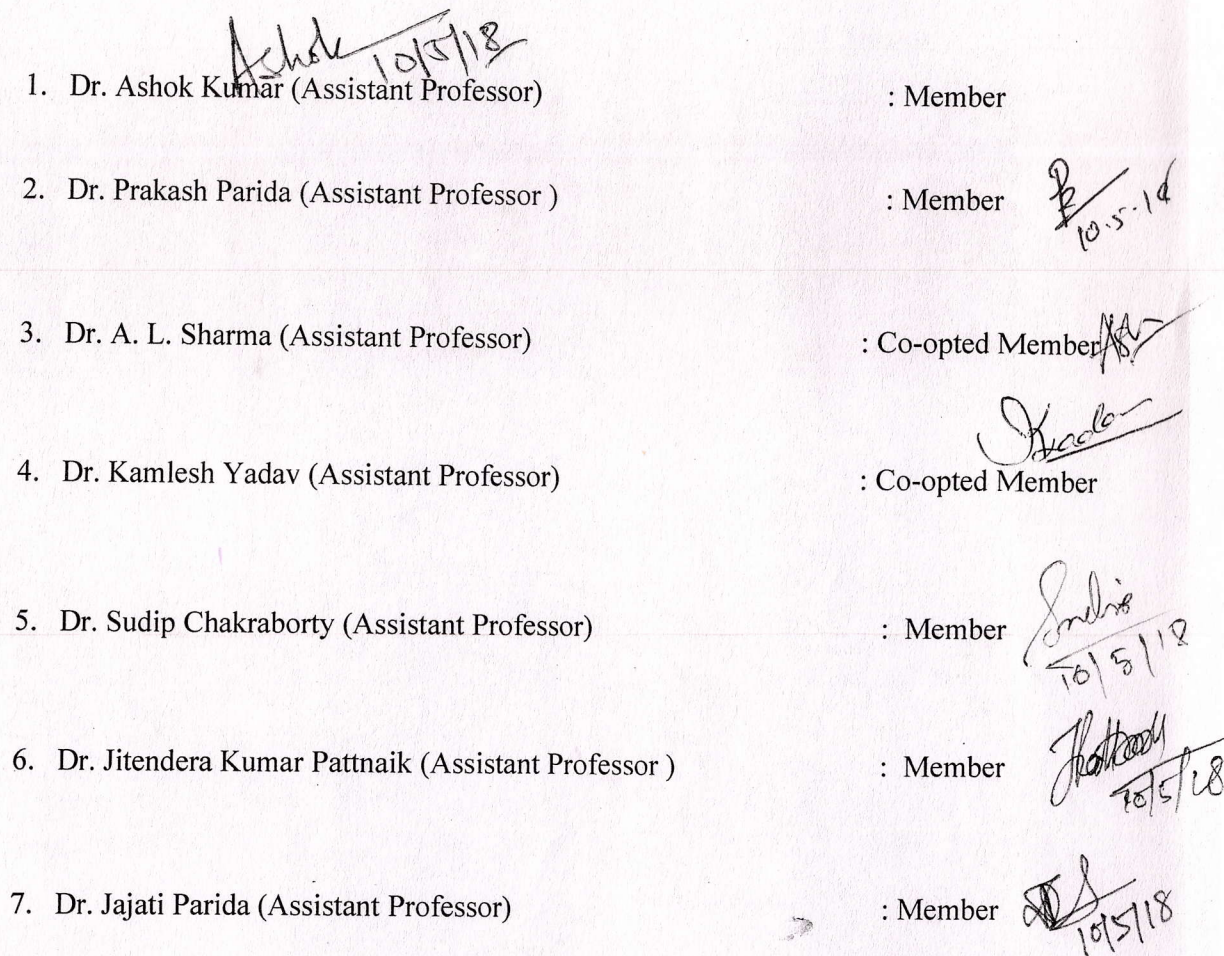 Ashok 10/5/18
1. Dr. Ashok Kumar (Assistant Professor) : Member
2. Dr. Prakash Parida (Assistant Professor ) : Member
10.5.18
3. Dr. A. L. Sharma (Assistant Professor) : Co-opted Member
4. Dr. Kamlesh Yadav (Assistant Professor) : Co-opted Member
5. Dr. Sudip Chakraborty (Assistant Professor) : Member
10/5/18
6. Dr. Jitendera Kumar Pattnaik (Assistant Professor ) : Member
10/5/18
7. Dr. Jajati Parida (Assistant Professor) : Member
10/5/18